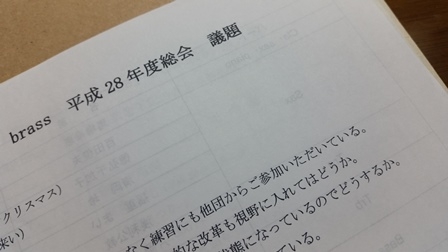 brass 平成28年度総会 議題
クリスマス）
なく練習にも他団からご参加いただいている。
的な改革も視野に入れてはどうか。
状態になっているのでどうするか。
ている。